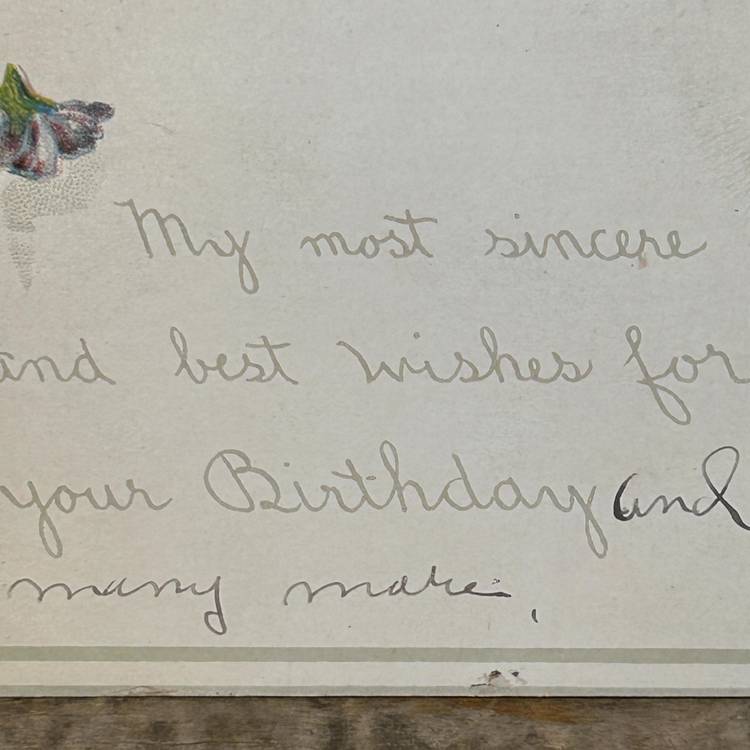 My most sincere
and best wishes for
your Birthday and
many more.